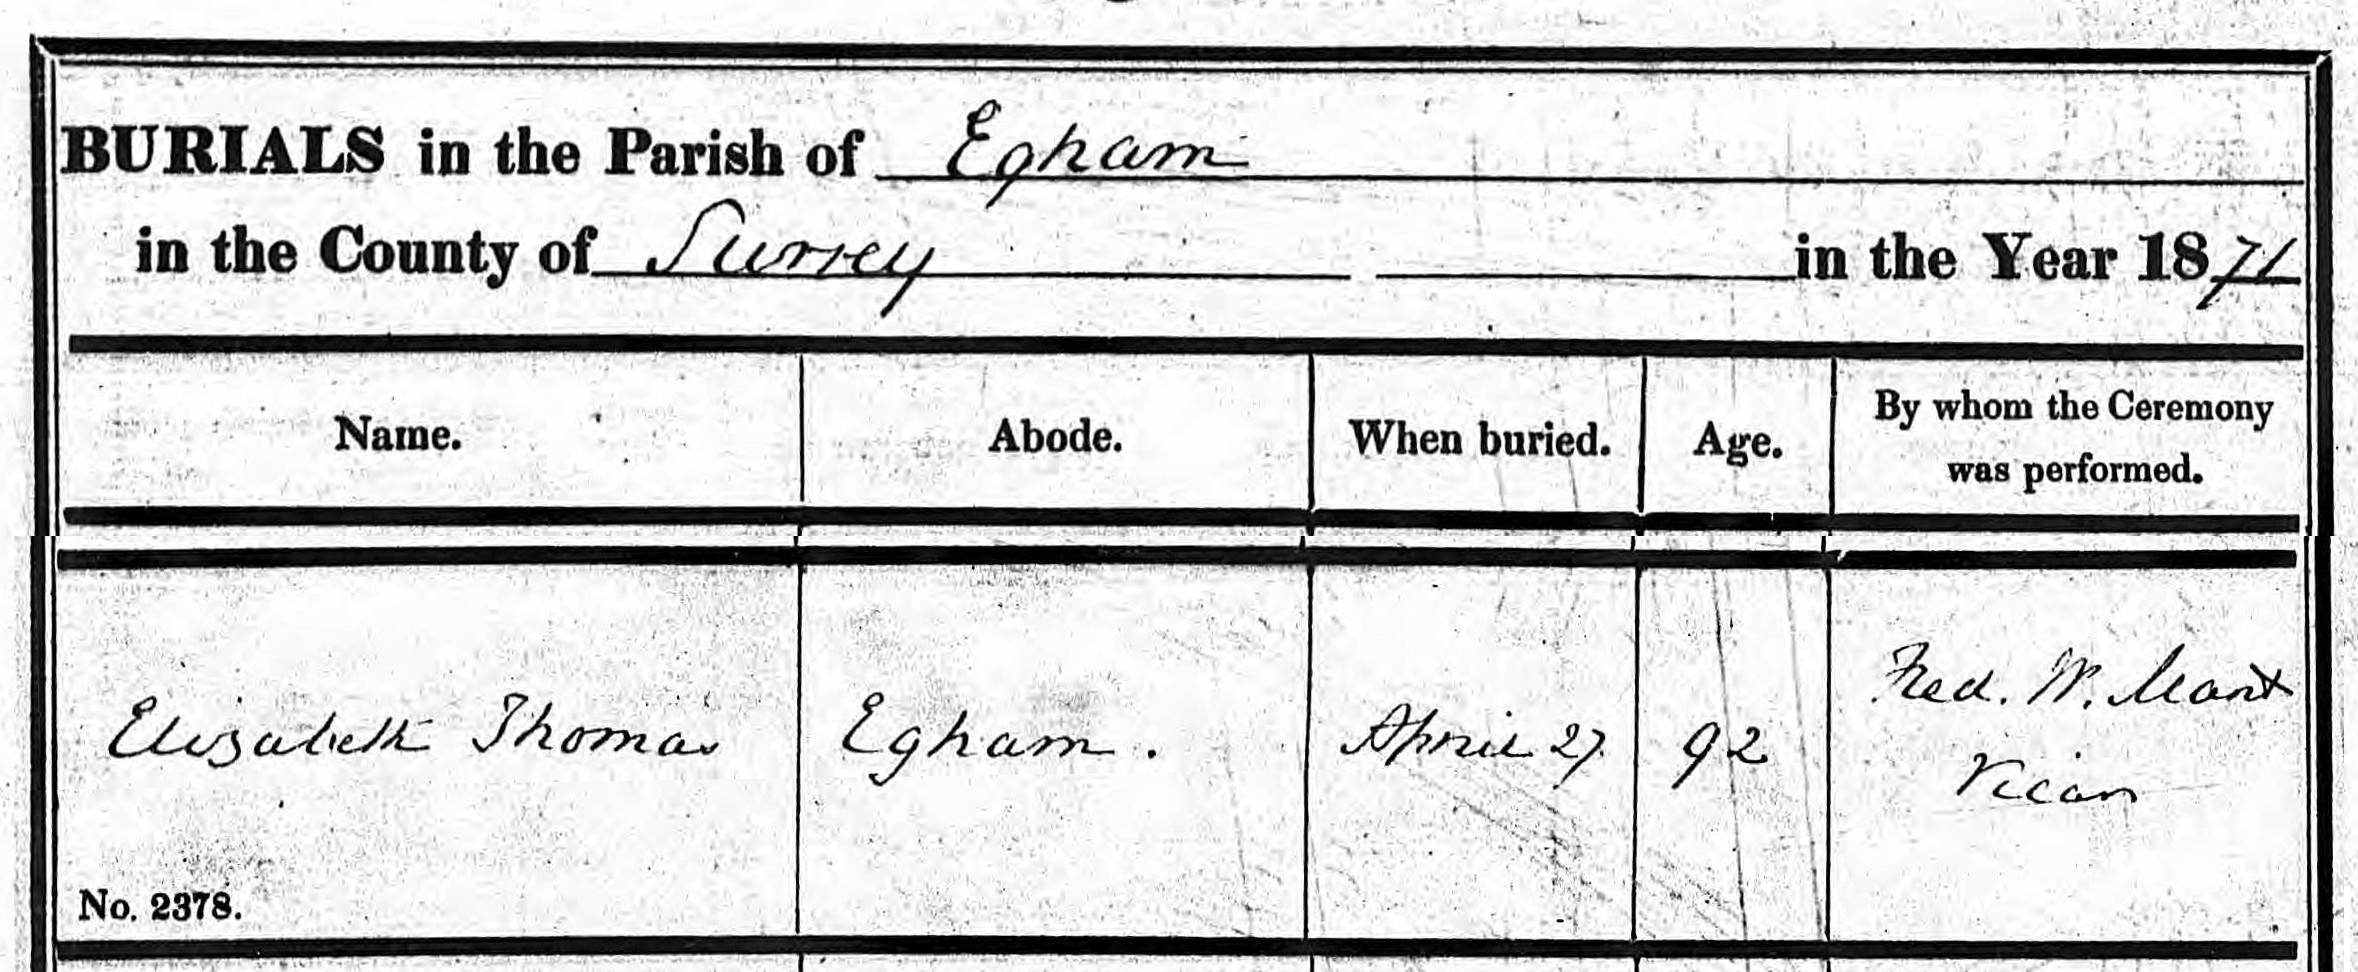 BURIALS in the Parish of Egham
in the County of Surrey in the Year 1871
Name. Abode. When buried. Age. By whom the Ceremony
was performed.
Elizabeth Thomas Egham. April 27. 92 Fred. W. Mant
Vicar
No. 2378.